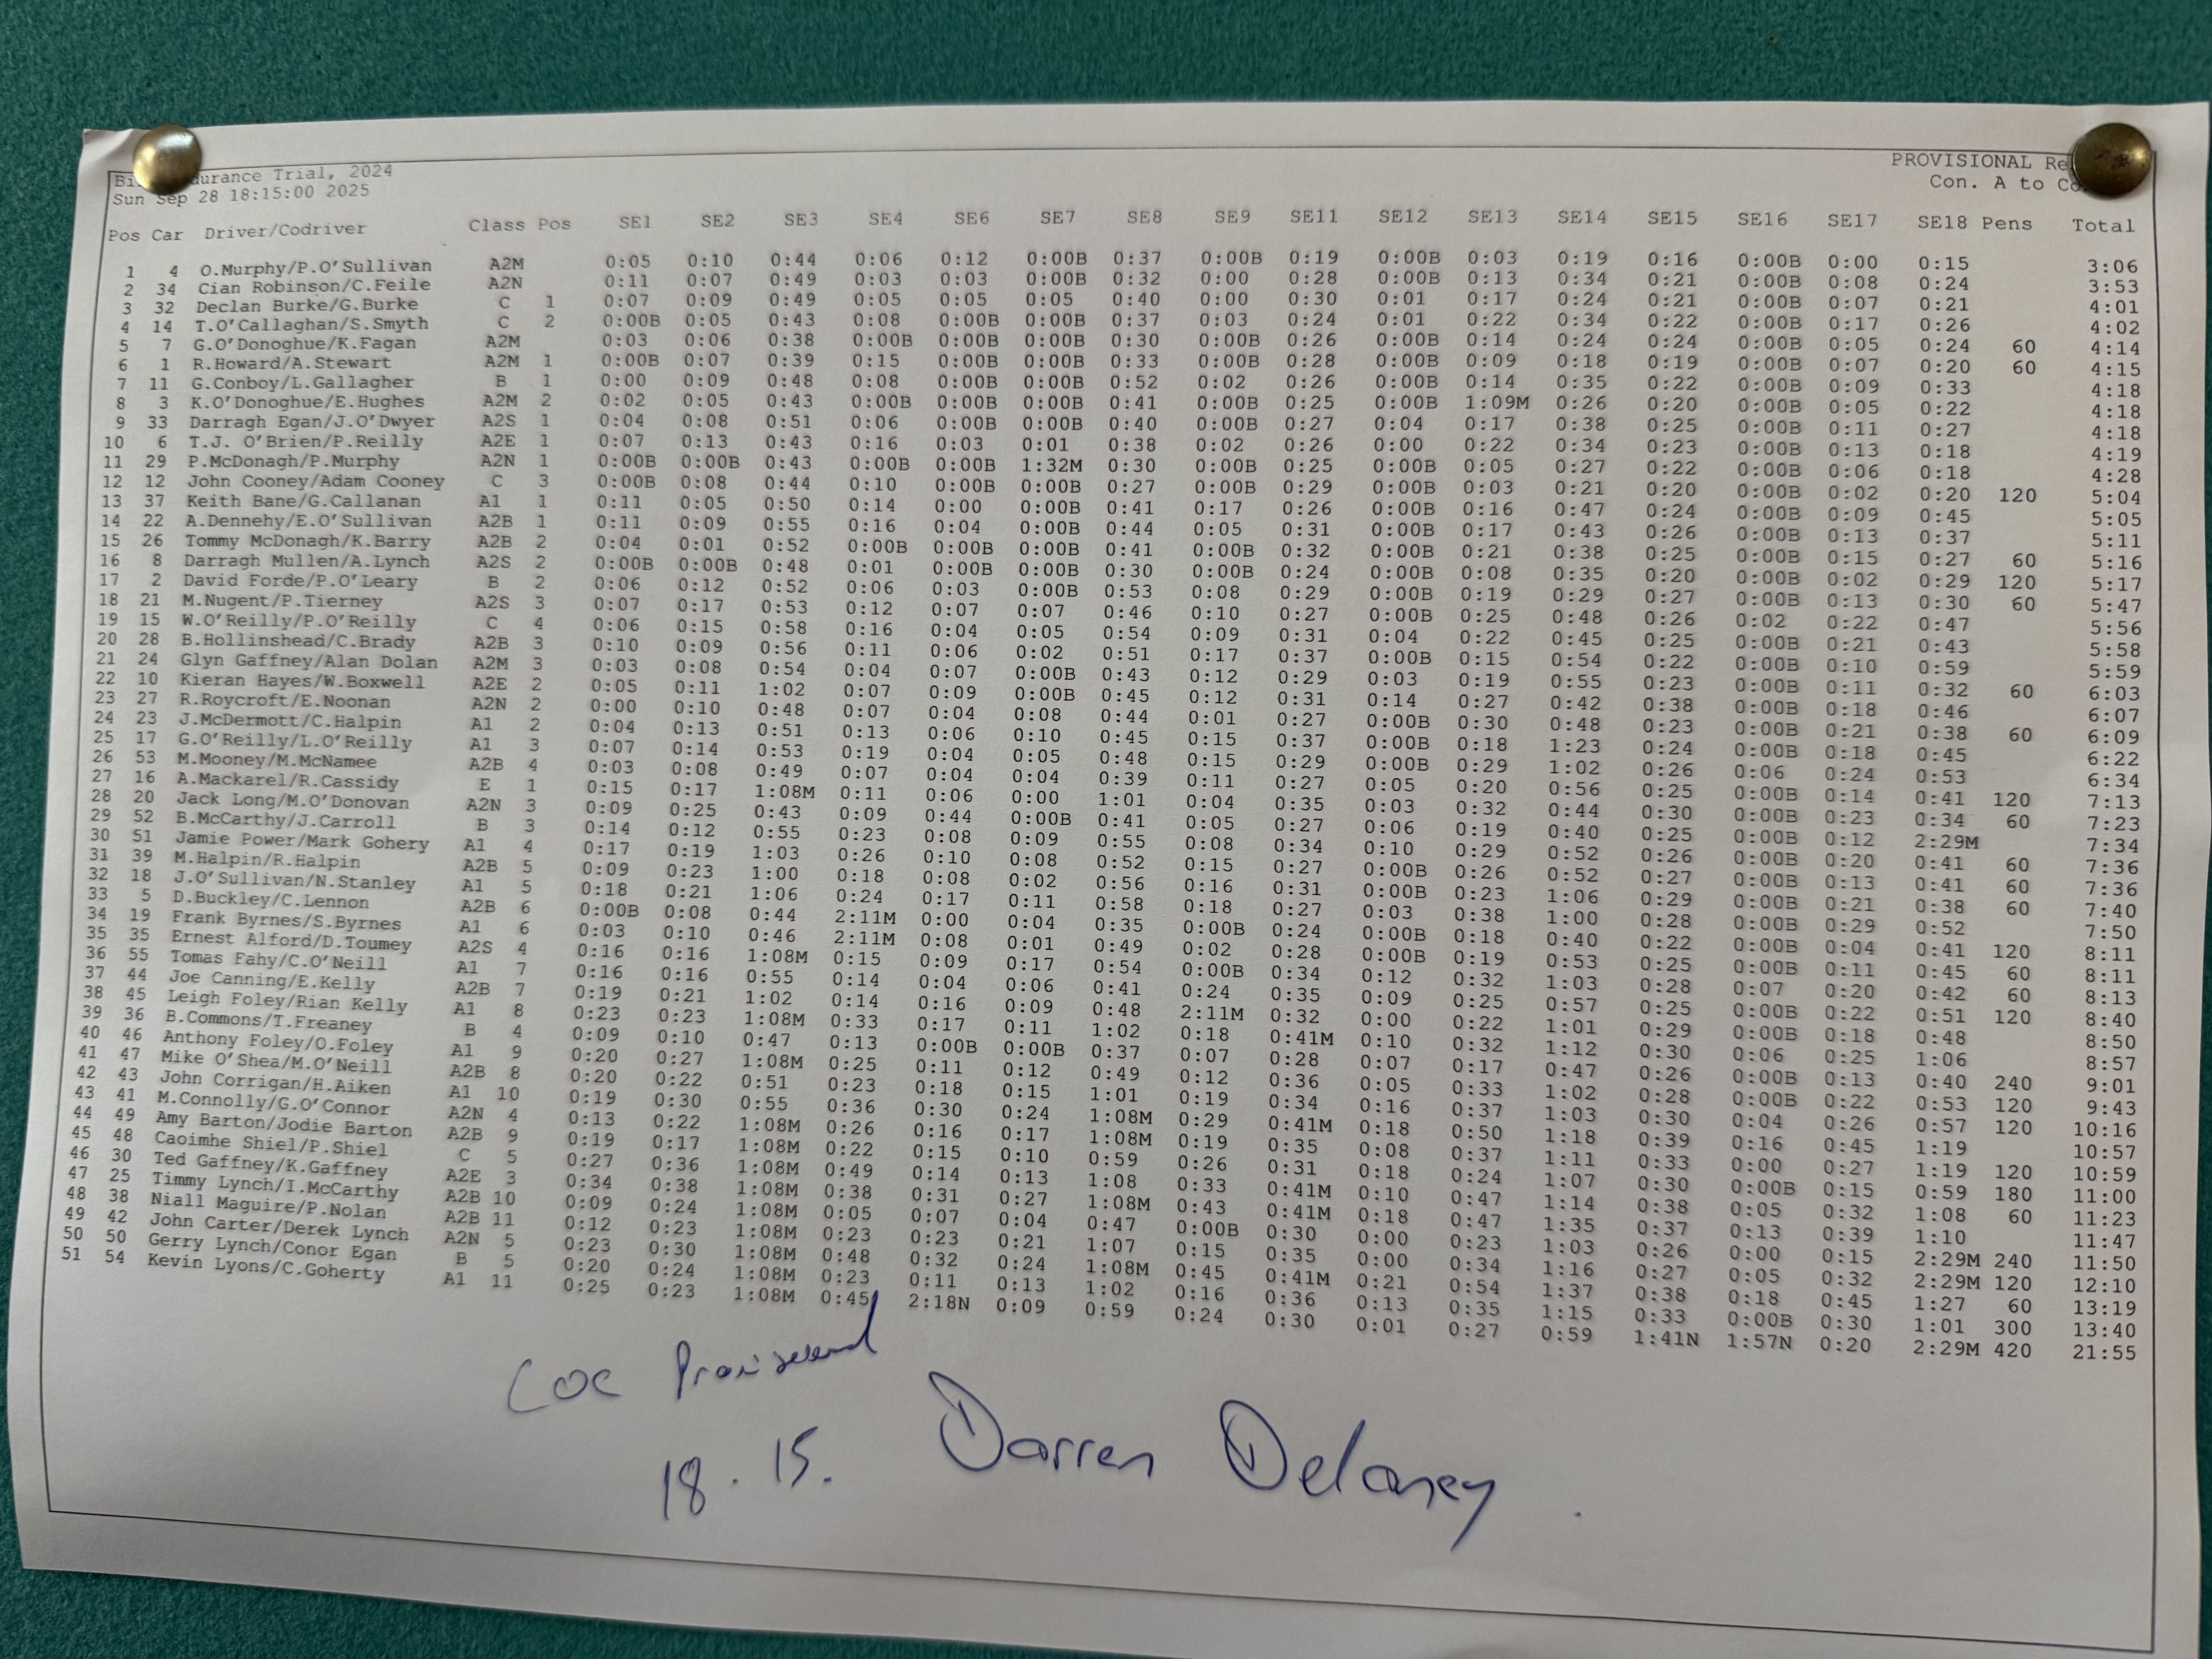 durance Trial, 2024 PROVISIONAL
Sun Sep 28 18:15:00 2025 Con. A to
Pos Car Driver/Codriver Class Pos SE1 SE2 SE3 SE4 SE6 SE7 SE8 SE9 SE11 SE12 SE13 SE14 SE15 SE16 SE17 SE18 Pens Total
1 4 O.Murphy/P.O'Sullivan A2M 0:05 0:10 0:44 0:06 0:12 0:00B 0:37 0:00B 0:19 0:00B 0:03 0:19 0:16 0:00B 0:00 0:15 3:06
2 34 Cian Robinson/C.Feile A2N 0:11 0:07 0:49 0:03 0:03 0:00B 0:32 0:00 0:28 0:00B 0:13 0:34 0:21 0:00B 0:08 0:24 3:53
3 32 Declan Burke/G.Burke C 1 0:07 0:09 0:49 0:05 0:05 0:05 0:40 0:00 0:30 0:01 0:17 0:24 0:21 0:00B 0:07 0:21 4:01
4 14 T.O'Callaghan/S.Smyth C 2 0:00B 0:05 0:43 0:08 0:00B 0:00B 0:37 0:03 0:24 0:01 0:22 0:34 0:22 0:00B 0:17 0:26 4:02
5 7 G.O'Donoghue/K.Fagan A2M 0:03 0:06 0:38 0:00B 0:00B 0:00B 0:30 0:00B 0:26 0:00B 0:14 0:24 0:24 0:00B 0:05 0:24 60 4:14
6 1 R.Howard/A.Stewart A2M 1 0:00B 0:07 0:39 0:15 0:00B 0:00B 0:33 0:00B 0:28 0:00B 0:09 0:18 0:19 0:00B 0:07 0:20 60 4:15
7 11 G.Conboy/L.Gallagher B 1 0:00 0:09 0:48 0:08 0:00B 0:00B 0:52 0:02 0:26 0:00B 0:14 0:35 0:22 0:00B 0:09 0:33 4:18
8 3 K.O'Donoghue/E.Hughes A2M 2 0:02 0:05 0:43 0:00B 0:00B 0:00B 0:41 0:00B 0:25 0:00B 1:09M 0:26 0:20 0:00B 0:05 0:22 4:18
9 33 Darragh Egan/J.O'Dwyer A2S 1 0:04 0:08 0:51 0:06 0:00B 0:00B 0:40 0:00B 0:27 0:04 0:17 0:38 0:25 0:00B 0:11 0:27 4:18
10 6 T.J. O'Brien/P.Reilly A2E 1 0:07 0:13 0:43 0:16 0:03 0:01 0:38 0:02 0:26 0:00 0:22 0:34 0:23 0:00B 0:13 0:18 4:19
11 29 P.McDonagh/P.Murphy A2N 1 0:00B 0:00B 0:43 0:00B 0:00B 1:32M 0:30 0:00B 0:25 0:00B 0:05 0:27 0:22 0:00B 0:06 0:18 4:28
12 12 John Cooney/Adam Cooney C 3 0:00B 0:08 0:44 0:10 0:00B 0:00B 0:27 0:00B 0:29 0:00B 0:03 0:21 0:20 0:00B 0:02 0:20 120 5:04
13 37 Keith Bane/G.Callanan A1 1 0:11 0:05 0:50 0:14 0:00 0:00B 0:41 0:17 0:26 0:00B 0:16 0:47 0:24 0:00B 0:09 0:45 5:05
14 22 A.Dennehy/E.O'Sullivan A2B 1 0:11 0:09 0:55 0:16 0:04 0:00B 0:44 0:05 0:31 0:00B 0:17 0:43 0:26 0:00B 0:13 0:37 5:11
15 26 Tommy McDonagh/K.Barry A2B 2 0:04 0:01 0:52 0:00B 0:00B 0:00B 0:41 0:00B 0:32 0:00B 0:21 0:38 0:25 0:00B 0:15 0:27 60 5:16
16 8 Darragh Mullen/A.Lynch A2S 2 0:00B 0:00B 0:48 0:01 0:00B 0:00B 0:30 0:00B 0:24 0:00B 0:08 0:35 0:20 0:00B 0:02 0:29 120 5:17
17 2 David Forde/P.O'Leary B 2 0:06 0:12 0:52 0:06 0:03 0:00B 0:53 0:08 0:29 0:00B 0:19 0:29 0:27 0:00B 0:13 0:30 60 5:47
18 21 M.Nugent/P.Tierney A2S 3 0:07 0:17 0:53 0:12 0:07 0:07 0:46 0:10 0:27 0:00B 0:25 0:48 0:26 0:02 0:22 0:47 5:56
19 15 W.O'Reilly/P.O'Reilly C 4 0:06 0:15 0:58 0:16 0:04 0:05 0:54 0:09 0:31 0:04 0:22 0:45 0:25 0:00B 0:21 0:43 5:58
20 28 B.Hollinshead/C.Brady A2B 3 0:10 0:09 0:56 0:11 0:06 0:02 0:51 0:17 0:37 0:00B 0:15 0:54 0:22 0:00B 0:10 0:59 5:59
21 24 Glyn Gaffney/Alan Dolan A2M 3 0:03 0:08 0:54 0:04 0:07 0:00B 0:43 0:12 0:29 0:03 0:19 0:55 0:23 0:00B 0:11 0:32 60 6:03
22 10 Kieran Hayes/W.Boxwell A2E 2 0:05 0:11 1:02 0:07 0:09 0:00B 0:45 0:12 0:31 0:14 0:27 0:42 0:38 0:00B 0:18 0:46 6:07
23 27 R.Roycroft/E.Noonan A2N 2 0:00 0:10 0:48 0:07 0:04 0:08 0:44 0:01 0:27 0:00B 0:30 0:48 0:23 0:00B 0:21 0:38 60 6:09
24 23 J.McDermott/C.Halpin A1 2 0:04 0:13 0:51 0:13 0:06 0:10 0:45 0:15 0:37 0:00B 0:18 1:23 0:24 0:00B 0:18 0:45 6:22
25 17 G.O'Reilly/L.O'Reilly A1 3 0:07 0:14 0:53 0:19 0:04 0:05 0:48 0:15 0:29 0:00B 0:29 1:02 0:26 0:06 0:24 0:53 6:34
26 53 M.Mooney/M.McNamee A2B 4 0:03 0:08 0:49 0:07 0:04 0:04 0:39 0:11 0:27 0:05 0:20 0:56 0:25 0:00B 0:14 0:41 120 7:13
27 16 A.Mackarel/R.Cassidy E 1 0:15 0:17 1:08M 0:11 0:06 0:00 1:01 0:04 0:35 0:03 0:32 0:44 0:30 0:00B 0:23 0:34 60 7:23
28 20 Jack Long/M.O'Donovan A2N 3 0:09 0:25 0:43 0:09 0:44 0:00B 0:41 0:05 0:27 0:06 0:19 0:40 0:25 0:00B 0:12 2:29M 7:34
29 52 B.McCarthy/J.Carroll B 3 0:14 0:12 0:55 0:23 0:08 0:09 0:55 0:08 0:34 0:10 0:29 0:52 0:26 0:00B 0:20 0:41 60 7:36
30 51 Jamie Power/Mark Gohery A1 4 0:17 0:19 1:03 0:26 0:10 0:08 0:52 0:15 0:27 0:00B 0:26 0:52 0:27 0:00B 0:13 0:41 60 7:36
31 39 M.Halpin/R.Halpin A2B 5 0:09 0:23 1:00 0:18 0:08 0:02 0:56 0:16 0:31 0:00B 0:23 1:06 0:29 0:00B 0:21 0:38 60 7:40
32 18 J.O'Sullivan/N.Stanley A1 5 0:18 0:21 1:06 0:24 0:17 0:11 0:58 0:18 0:27 0:03 0:38 1:00 0:28 0:00B 0:29 0:52 7:50
33 5 D.Buckley/C.Lennon A2B 6 0:00B 0:08 0:44 2:11M 0:00 0:04 0:35 0:00B 0:24 0:00B 0:18 0:40 0:22 0:00B 0:04 0:41 120 8:11
34 19 Frank Byrnes/S.Byrnes A1 6 0:03 0:10 0:46 2:11M 0:08 0:01 0:49 0:02 0:28 0:00B 0:19 0:53 0:25 0:00B 0:11 0:45 60 8:11
35 35 Ernest Alford/D.Toumey A2S 4 0:16 0:16 1:08M 0:15 0:09 0:17 0:54 0:00B 0:34 0:12 0:32 1:03 0:28 0:07 0:20 0:42 60 8:13
36 55 Tomas Fahy/C.O'Neill A1 7 0:16 0:16 0:55 0:14 0:04 0:06 0:41 0:24 0:35 0:09 0:25 0:57 0:25 0:00B 0:22 0:51 120 8:40
37 44 Joe Canning/E.Kelly A2B 7 0:19 0:21 1:02 0:14 0:16 0:09 0:48 2:11M 0:32 0:00 0:22 1:01 0:29 0:00B 0:18 0:48 8:50
38 45 Leigh Foley/Rian Kelly A1 8 0:23 0:23 1:08M 0:33 0:17 0:11 1:02 0:18 0:41M 0:10 0:32 1:12 0:30 0:06 0:25 1:06 8:57
39 36 B.Commons/T.Freaney B 4 0:09 0:10 0:47 0:13 0:00B 0:00B 0:37 0:07 0:28 0:07 0:17 0:47 0:26 0:00B 0:13 0:40 240 9:01
40 46 Anthony Foley/O.Foley A1 9 0:20 0:27 1:08M 0:25 0:11 0:12 0:49 0:12 0:36 0:05 0:33 1:02 0:28 0:00B 0:22 0:53 120 9:43
41 47 Mike O'Shea/M.O'Neill A2B 8 0:20 0:22 0:51 0:23 0:18 0:15 1:01 0:19 0:34 0:16 0:37 1:03 0:30 0:04 0:26 0:57 120 10:16
42 43 John Corrigan/H.Aiken A1 10 0:19 0:30 0:55 0:36 0:30 0:24 1:08M 0:29 0:41M 0:18 0:50 1:18 0:39 0:16 0:45 1:19 10:57
43 41 M.Connolly/G.O'Connor A2N 4 0:13 0:22 1:08M 0:26 0:16 0:17 1:08M 0:19 0:35 0:08 0:37 1:11 0:33 0:00 0:27 1:19 120 10:59
44 49 Amy Barton/Jodie Barton A2B 9 0:19 0:17 1:08M 0:22 0:15 0:10 0:59 0:26 0:31 0:18 0:24 1:07 0:30 0:00B 0:15 0:59 180 11:00
45 48 Caoimhe Shiel/P.Shiel C 5 0:27 0:36 1:08M 0:49 0:14 0:13 1:08 0:33 0:41M 0:10 0:47 1:14 0:38 0:05 0:32 1:08 60 11:23
46 30 Ted Gaffney/K.Gaffney A2E 3 0:34 0:38 1:08M 0:38 0:31 0:27 1:08M 0:43 0:41M 0:18 0:47 1:35 0:37 0:13 0:39 1:10 11:47
47 25 Timmy Lynch/I.McCarthy A2B 10 0:09 0:24 1:08M 0:05 0:07 0:04 0:47 0:00B 0:30 0:00 0:23 1:03 0:26 0:00 0:15 2:29M 240 11:50
48 38 Niall Maguire/P.Nolan A2B 11 0:12 0:23 1:08M 0:23 0:23 0:21 1:07 0:15 0:35 0:00 0:34 1:16 0:27 0:05 0:32 2:29M 120 12:10
49 42 John Carter/Derek Lynch A2N 5 0:23 0:30 1:08M 0:48 0:32 0:24 1:08M 0:45 0:41M 0:21 0:54 1:37 0:38 0:18 0:45 1:27 60 13:19
50 50 Gerry Lynch/Conor Egan B 5 0:20 0:24 1:08M 0:23 0:11 0:13 1:02 0:16 0:36 0:13 0:35 1:15 0:33 0:00B 0:30 1:01 300 13:40
51 54 Kevin Lyons/C.Goherty A1 11 0:25 0:23 1:08M 0:45 2:18N 0:09 0:59 0:24 0:30 0:01 0:27 0:59 1:41N 1:57N 0:20 2:29M 420 21:55
COC
18.15. Darren Delaney.